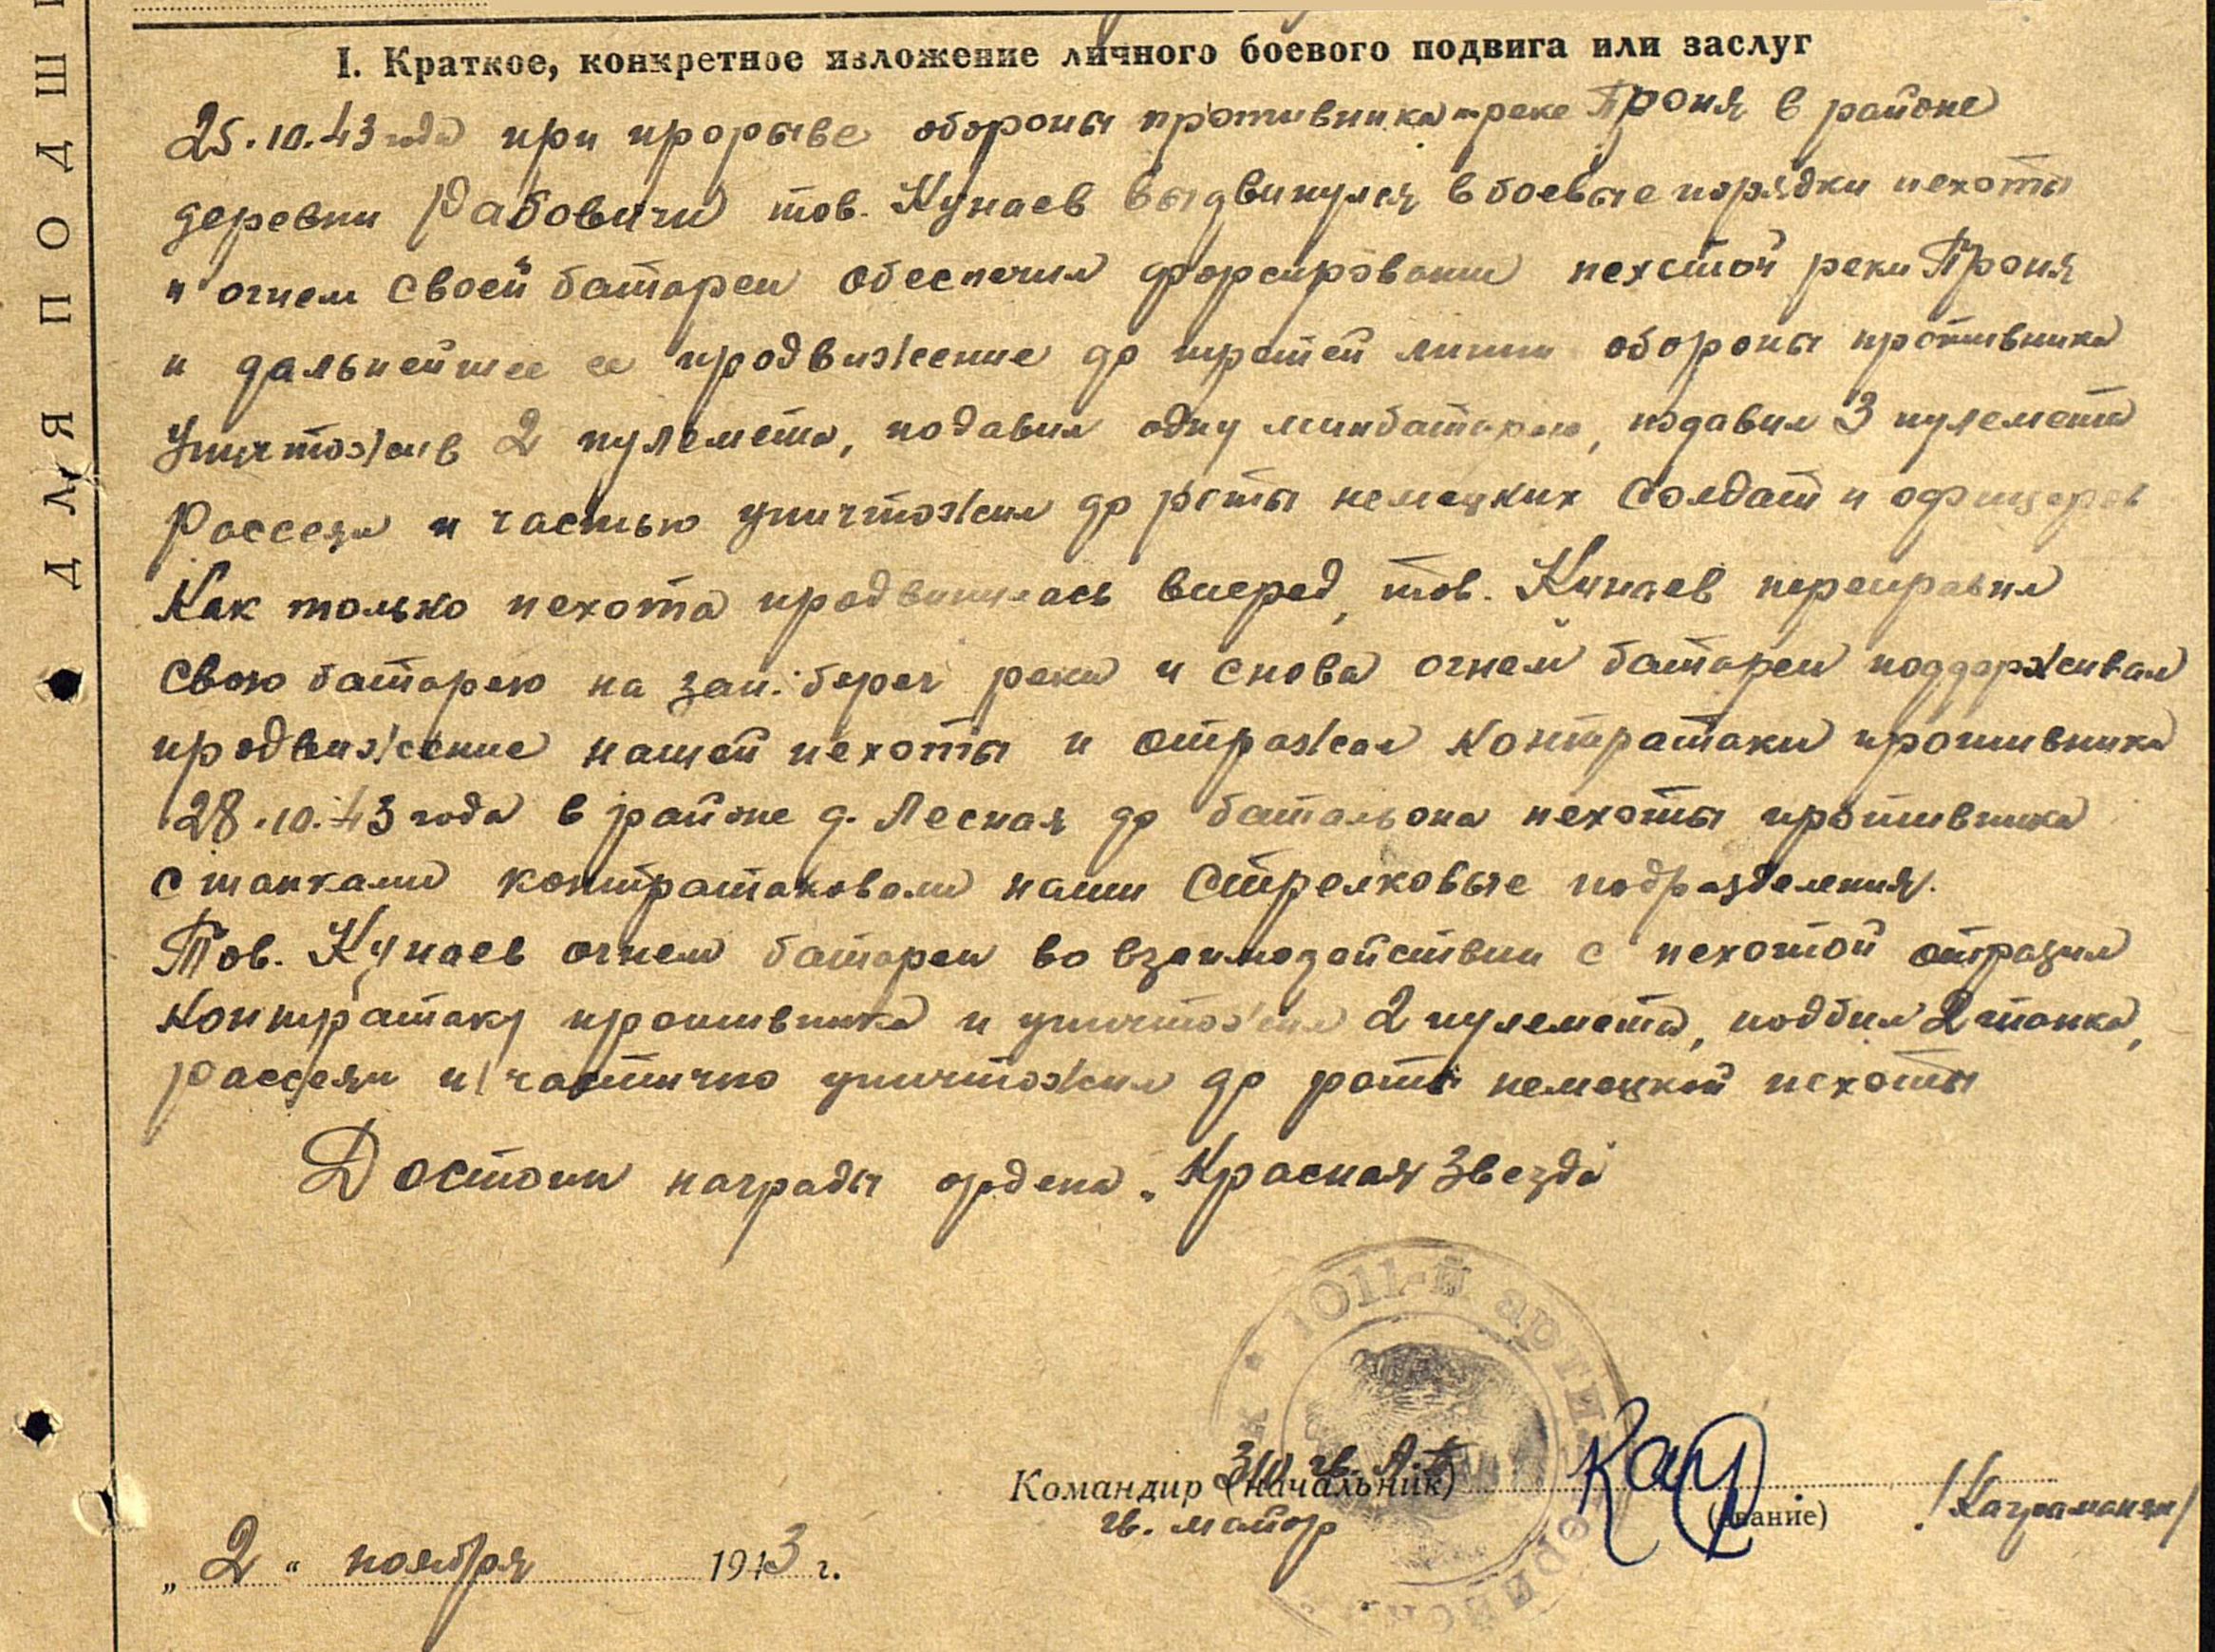 ДЛЯ ПОДШ
I. Краткое, конкретное изложение личного боевого подвига или заслуг
25.10.43 года при прорыве обороны противника на реке Проня в районе
деревни Рабовичи тов. Кунаев выдвинулся в боевые порядки пехоты
и огнем своей батареи обеспечил форсирование пехотой реки Проня
и дальнейшее ее продвижение до третей линии обороны противника
Уничтожив 2 пулемета, подавил одну минбатарею, подавил 3 пулемета
Рассеял и частью уничтожил до роты немецких солдат и офицеров
Как только пехота продвинулась вперед, тов. Кунаев переправил
свою батарею на зап. берег реки и снова огнем батареи поддерживал
продвижение нашей пехоты и отражал контратаки противника
28.10.43 года в районе д. Лесная до батальона пехоты противника
с танками контратаковали наши стрелковые подразделения.
Тов. Кунаев огнем батареи во взаимодействии с пехотой отразил
контратаку противника и уничтожил 2 пулемета, подбил 2 танка,
рассеял и частично уничтожил до роты немецкой пехоты
Достоин награды ордена „Красная Звезда
1011-й арти
Командир (начальник)
гв. майор
(звание)
/Каграманян/
„2" ноября 1943 г.